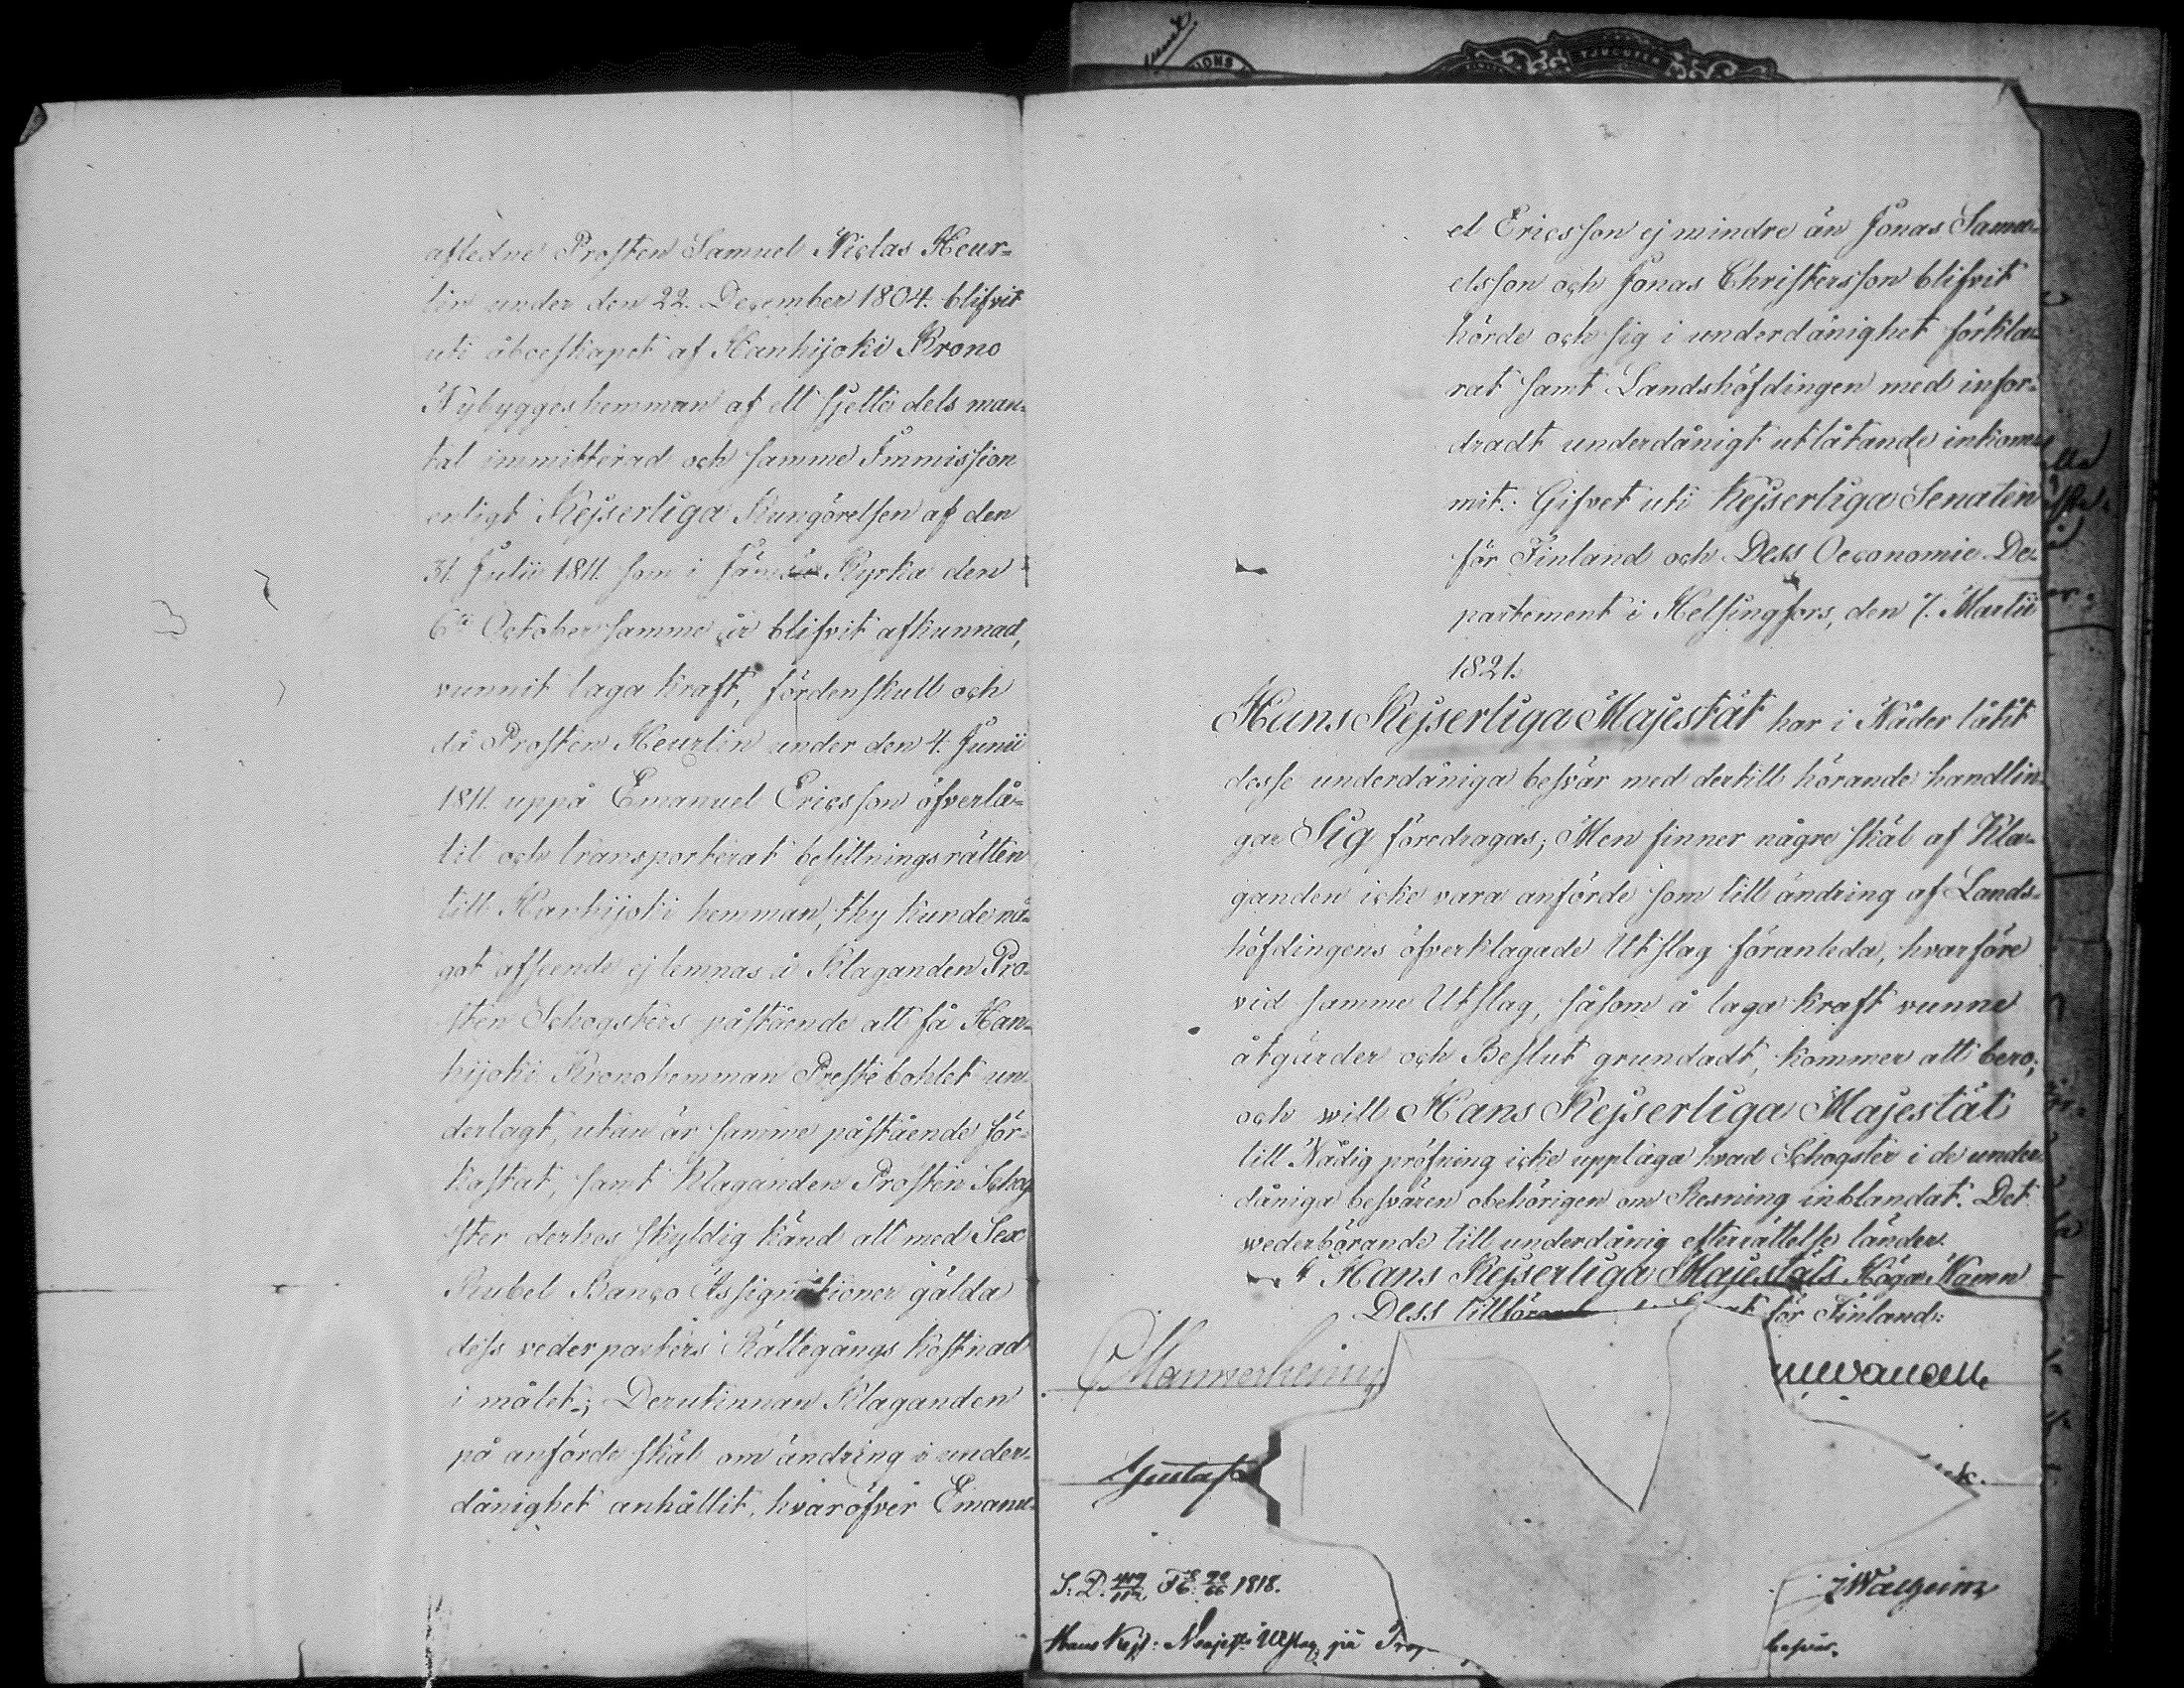 afledne Prosten Samuel Niclas Heur-
lin under den 22. December 1804. blifvit
uti åboeskapet af Hanhijoki Krono
Nybyggeshemman af ett sjette dels man-
tal immitterad och samme Immission
enligt Kejserliga Kungörelsen af den
31. Julii 1811. som i Jämsä Kyrka den
6te October samme år blifvit afkunnad,
vunnit laga kraft, fördenskull och
då Prosten Heurlin under den 4. Junii
1811. uppå Emanuel Ericsson öfverlå-
tit och transporterat besittningsrätten
till Hanhijoki hemman, thy kunde nå-
got afseende ej lemnas å Klaganden Pro-
sten Schogsters påstående att få Han-
hijoki Kronohemman Prestebohlet un-
derlagt, utan är samme påstående för-
kastat, samt Klaganden Prosten Schog
ster derhos skyldig känd att med Sex
Rubel Banco Assignationer gälda
dess vederparters Rättegångs kostnad
i målet; Derutinnan Klaganden
på anförde skäl om ändring i under-
dånighet anhållit, hvaröfver Emanu-
el Ericsson ej mindre än Jonas Samu-
elsson och Jonas Christersson blifvit
hörde och sig i underdånighet förkla-
rat samt Landshöfdingen med infor-
dradt underdånigt utlåtande inkom-
mit. Gifvet uti Kejserliga Senaten
för Finland och Dess Oeconomie De-
partement i Helsingfors, den 7. Martii
1821.
Hans Kejserliga Majestät har i Nåder låtit
desse underdåniga besvär med dertill hörande handlin-
gar Sig föredragas; Men finner någre skäl af Kla-
ganden icke vara anförde som till ändring af Lands-
höfdingens öfverklagade Utslag föranleda, hvarföre
vid samme Utslag, såsom å laga kraft vunne
åtgärder och Beslut grundadt, kommer att bero;
och will Hans Kejserliga Majestät
till Nådig pröfning icke upptaga hvad Schogster i de under-
dåniga besvären obehörigen om Resning inblandat. Det
wederbörande till underdånig efterrättelse länder.
I Hans Kejserliga Majestäts Höga Namn
Dess tillför för Finland:
C Mannerheim
Gustaf
k.
S. D. 419/112 1818.
J Walheim
Hans Kejs: Majests Utslag på
besvär.